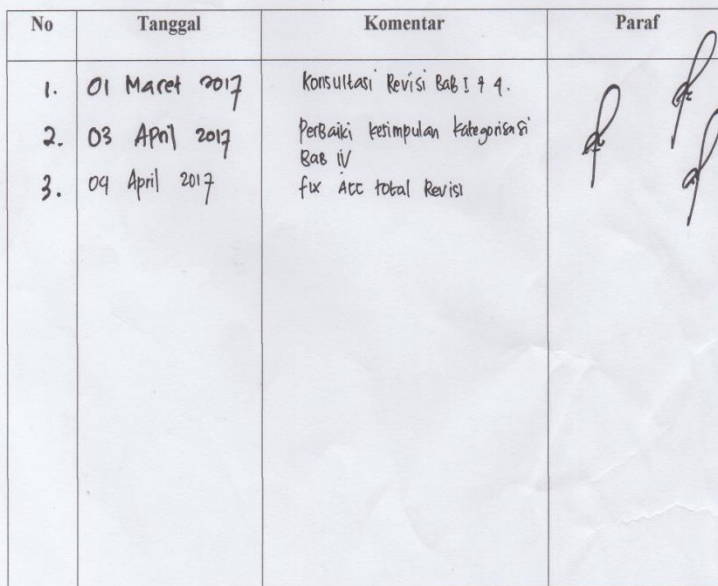 No Tanggal Komentar Paraf
1. 01 Maret 2017 Konsultasi Revisi Bab I & 4.
2. 03 April 2017 Perbaiki kesimpulan kategorisasi
Bab IV
3. 09 April 2017 fix Acc total Revisi